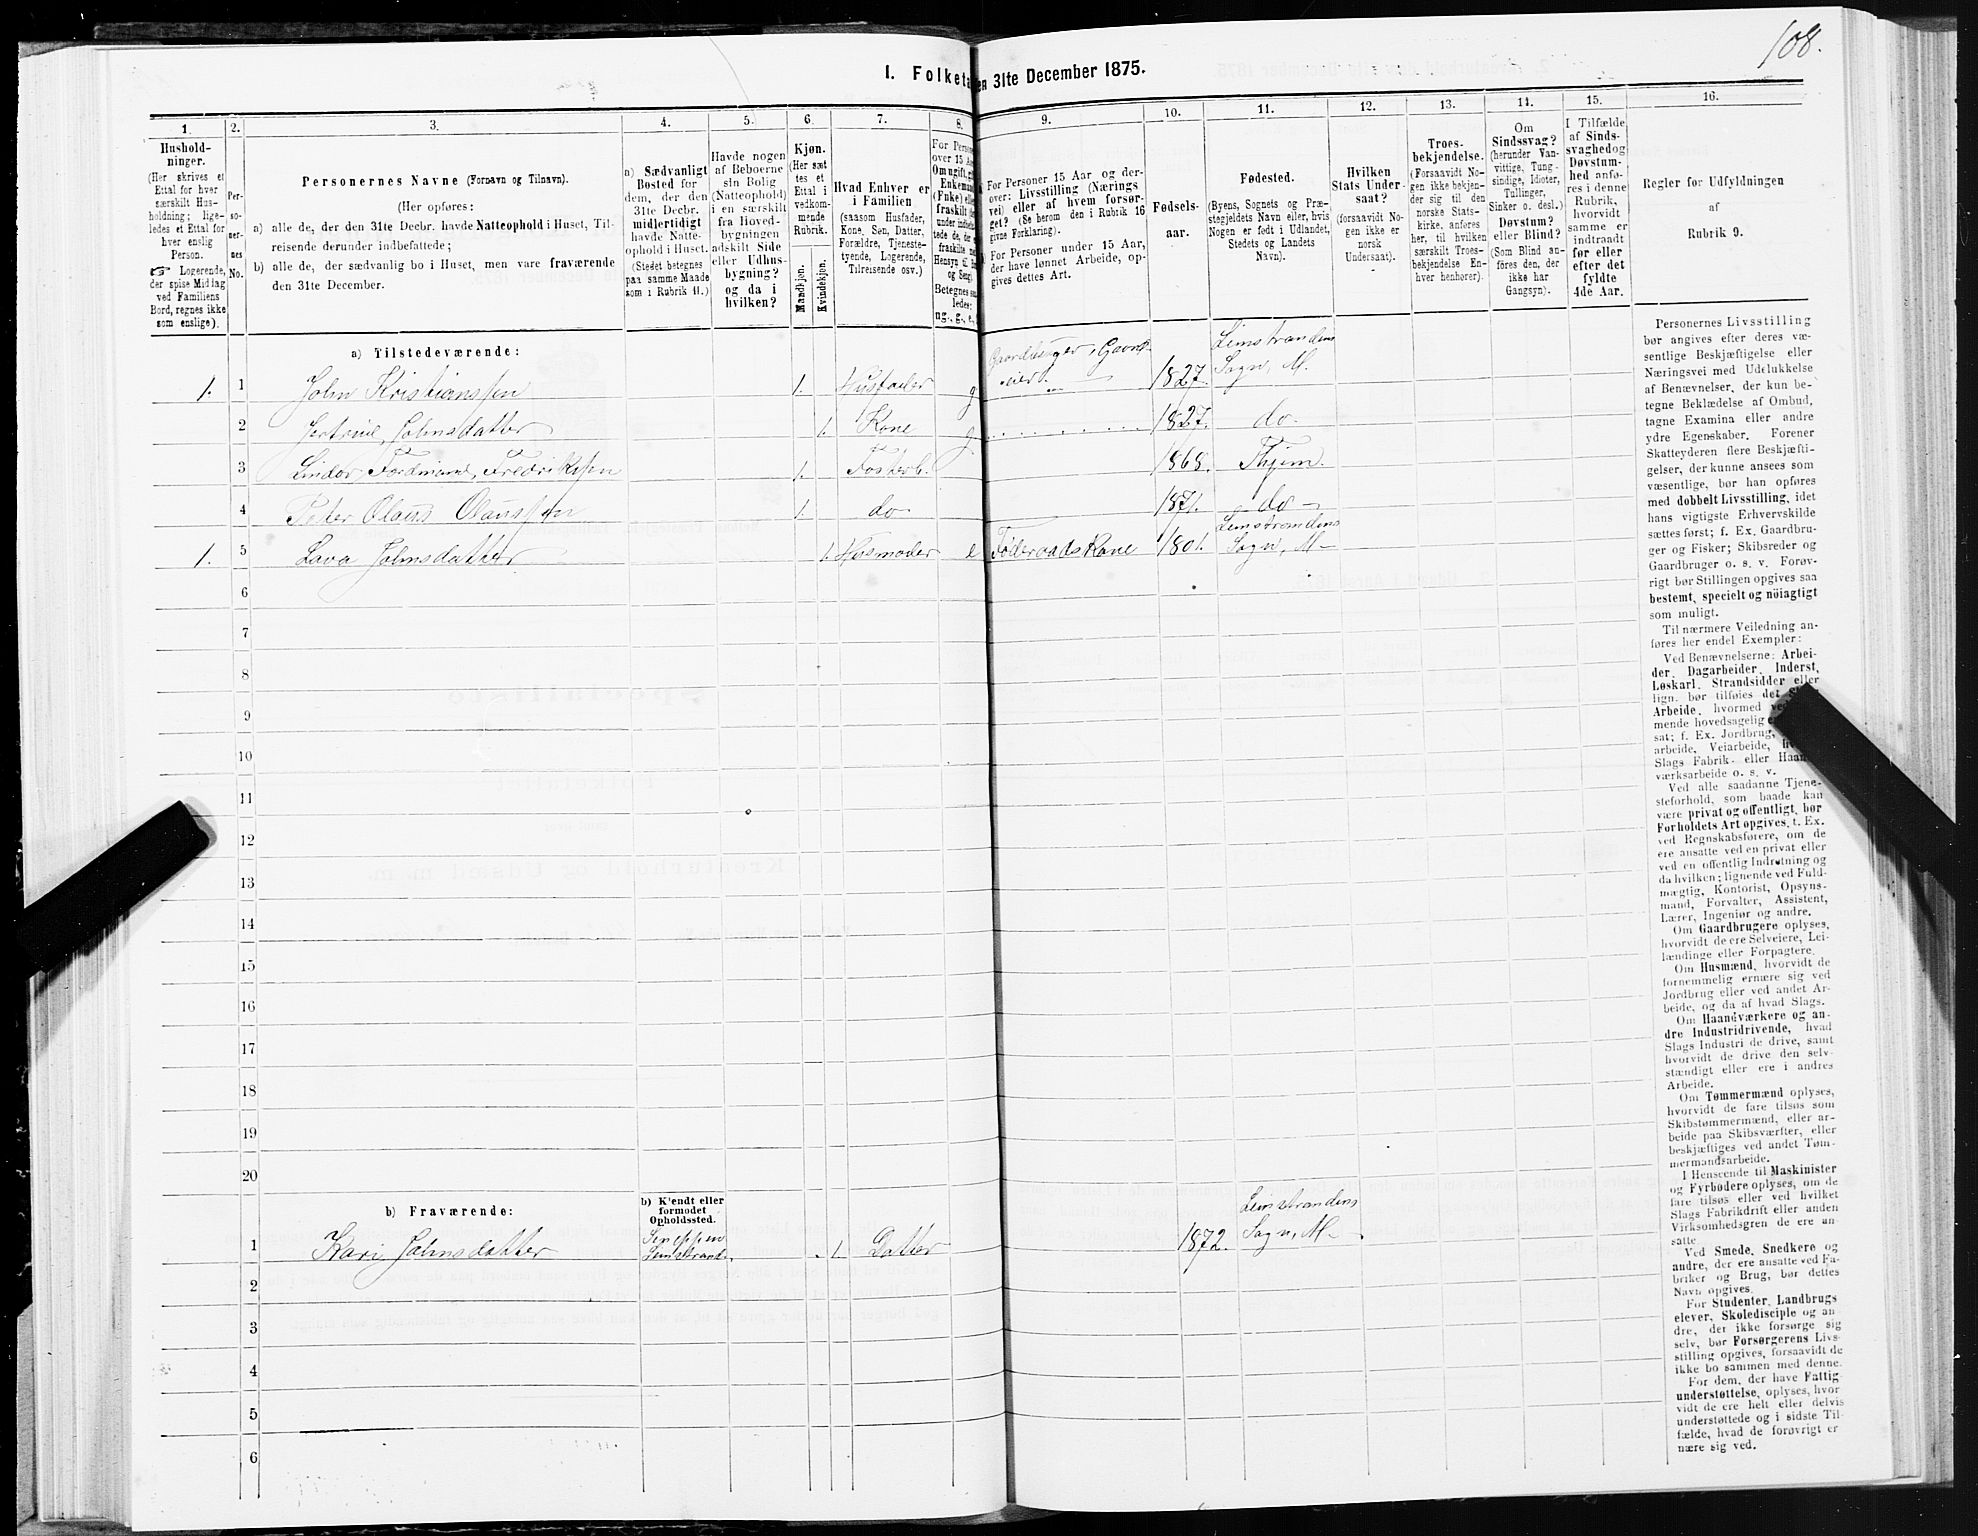 108.
I. Folketa
en 31te December 1875.
1.
2.
3.
4.
5.
6.
7.
8.
9.
10.
11.
12.
13.
14.
15.
16.
Hushold-
ninger.
(Her skrives et
Ettal for hver
særskilt Hus-
holdning; lige-
ledes et Ettal for
hver enslig
Person.
☞ Logerende,
der spise Middag
ved Familiens
Bord, regnes ikke
som enslige).
Per-
so-
ner-
nes
No.
Personernes Navne (Fornavn og Tilnavn).
(Her opføres:
a) alle de, der den 31te Decbr. havde Natteophold i Huset, Til-
reisende derunder indbefattede;
b) alle de, der sædvanlig bo i Huset, men vare fraværende
den 31te December.
a) Sædvanligt
Bosted for
dem, der den
31te Decbr.
midlertidigt
havde Natte-
ophold i Huset.
(Stedet betegnes
paa samme Maade
som i Rubrik 11.)
Havde nogen
af Beboerne
sin Bolig
(Natteophold)
i en særskilt
fra Hoved-
bygningen
adskilt Side
eller Udhus-
bygning?
og da i
hvilken?
Kjøn.
(Her sæt
tes et
Ettal i
vedkom-
mende
Rubrik.
Mandkjøn.
Kvindekjøn.
Hvad Enhver er
i Familien
(saasom Husfader,
Kone, Søn, Datter,
Forældre, Tjeneste-
tyende, Logerende,
Tilreisende osv.)
For Person
over 15 Aar
Om ugift, gi
Enkemand
(Enke) elle
fraskilt (
under indbe
tede de, der
fraskilte
Hensyn til B
og Seng)
Betegnes saa
ledes:
ug., g., e.,
For Personer 15 Aar og der-
over: Livsstilling (Nærings
vei) eller af hvem forsør-
get? (Se herom den i Rubrik 16
givne Forklaring).
For Personer under 15 Aar,
der have lønnet Arbeide, op-
gives dettes Art.
Fødsels-
aar.
Fødested.
(Byens, Sognets og Præ-
stegjeldets Navn eller, hvis
Nogen er født i Udlandet,
Stedets og Landets
Navn).
Hvilken
Stats Under-
saat?
(forsaavidt No-
gen ikke er
norsk
Undersaat).
Troes-
bekjendelse.
(Forsaavidt No-
gen ikke bekjen-
der sig til den
norske Stats-
kirke, anføres
her, til hvilken
særskilt Troes-
bekjendelse En-
hver henhører).
Om
Sindssvag?
(herunder Van-
vittige, Tung-
sindige, Idioter,
Tullinger,
Sinker o. desl.)
Døvstum?
eller Blind?
(Som Blind an-
føres den, der
ikke har
Gangsyn).
I Tilfælde
af Sinds-
svaghed og
Døvstum-
hed anfø-
res i denne
Rubrik,
hvorvidt
samme er
indtraadt
før eller
efter det
fyldte
4de Aar.
Regler før Udfyldningen
af
Rubrik 9.
a) Tilstedeværende:
1. 1 John Kristianssen 1. Husfader g Gaardbruger, Gaard- eier. 1827. Leinstrandens Sogn, M.
2 Jertrud Johnsdatter 1. Kone g 1827. do.
3 Lindor Ferdinand Fredrikssen 1. Fosterb. 1868. Thjem.
4 Peter Olaus Olaussen 1. do 1871. do
1. 5 Lava Johnsdatter 1. Husmoder e Føderaadskone 1801. Leinstrandens Sogn, M
6
7
8
9
10
11
12
13
14
15
16
17
18
19
20
b) Fraværende:
b) Kjendt eller
formodet
Opholdssted.
1 Kari Johnsdatter Leinstrand. 1. Datter 1872. Leinstrandens Sogn, M
2
3
4
5
6
Personernes Livsstilling
bør angives efter deres væ-
sentlige Beskjæftigelse eller
Næringsvei med Udelukkelse
af Benævnelser, der kun be-
tegne Beklædelse af Ombud,
tagne Examina eller andre
ydre Egenskaber. Forener
Skatteyderen flere Beskjæfti-
gelser, der kunne ansees som
væsentlige, bør han opføres
med dobbelt Livsstilling, idet
hans vigtigste Erhvervskilde
sættes først; f. Ex. Gaardbru-
ger og Fisker; Skibsreder og
Gaardbruger o. s. v. Forøv-
rigt bør Stillingen opgives saa
bestemt, specielt og nöiagtigt
som muligt.
Til nærmere Veiledning an-
føres her endel Exempler:
Ved Benævnelserne: Arbei-
der, Dagarbeider, Inderst,
Løskarl, Strandsidder eller
lign. bør tilføies det
Arbeide, hvormed ved
mende hovedsagelig er
sat; f. Ex. Jordbrug,
arbeide, Veiarbeide,
Slags Fabrik- eller Haand-
værksarbeide o. s. v.
Ved alle saadanne Tjene-
steforhold, som baade kan
være privat og offentligt, bør
Forholdets Art opgives, t. Ex.
ved Regnskabsførere, om de
ere ansatte ved en privat eller
ved en offentlig Indretning og
da hvilken; lignende ved Fuld-
mægtig, Kontorist, Opsyns-
mand, Forvalter, Assistent,
Lærer, Ingeniør og andre.
Om Gaardbrugere oplyses,
hvorvidt de ere Selveiere, Lei-
lændinge eller Forpagtere.
Om Husmænd, hvorvidt de
fornemmelig ernære sig ved
Jordbrug eller ved andet Ar-
beide, og da af hvad Slags.
Om Haandværkere og an-
dre Industridrivende, hvad
Slags Industri de drive, samt
hvorvidt de drive den selv-
stændigt eller ere i andres
Arbeide.
Om Tømmermænd oplyses,
hvorvidt de fare tilsøs som
Skibstømmermænd, eller ar-
beide paa Skibsværfter, eller
beskjæftiges ved andet Tøm-
mermandsarbeide.
I Henseende til Maskinister
og Fyrbødere oplyses, om de
fare tilsøs eller ved hvilket
Slags Fabrikdrift eller anden
Virksomhedsgren de ere an-
satte.
Ved Smede, Snedkere og
andre, der ere ansatte ved Fa-
briker og Brug, bør dettes
Navn opgives.
For Studenter, Landbrugs
elever, Skoledisciple og an-
dre, der ikke forsørge sig
selv, bør Forsørgerens Livs-
stilling opgives, forsaavidt de
ikke bo sammen med denne.
For dem, der have Fattig-
understøttelse, oplyses, hvor
vidt de ere helt eller delvis
understøttede og i sidste Til-
fælde, hvad de forøvrigt er
nære sig ved.